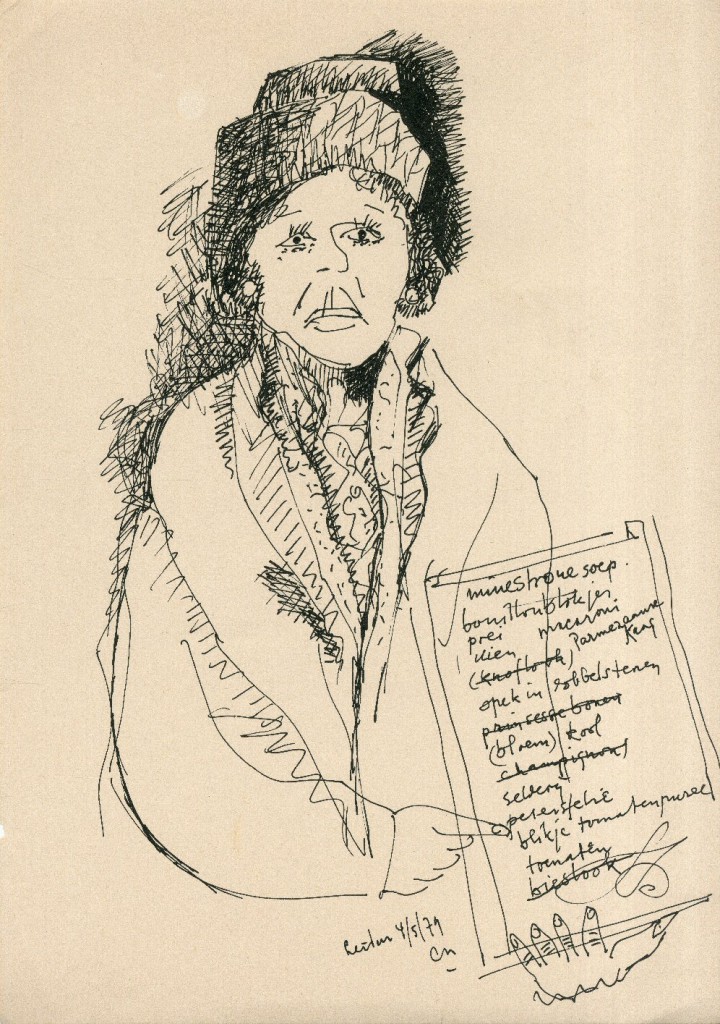 minestrone soep.
bouillonblokjes
prei macaroni
uien Parmezaanse
(knoflook) Kaas
spek in dobbelstenen
prinsessebonen
(bloem) kool
champignons
selderij
peterselie
blikje tomatenpuree
tomaten
bieslook
4/5/79